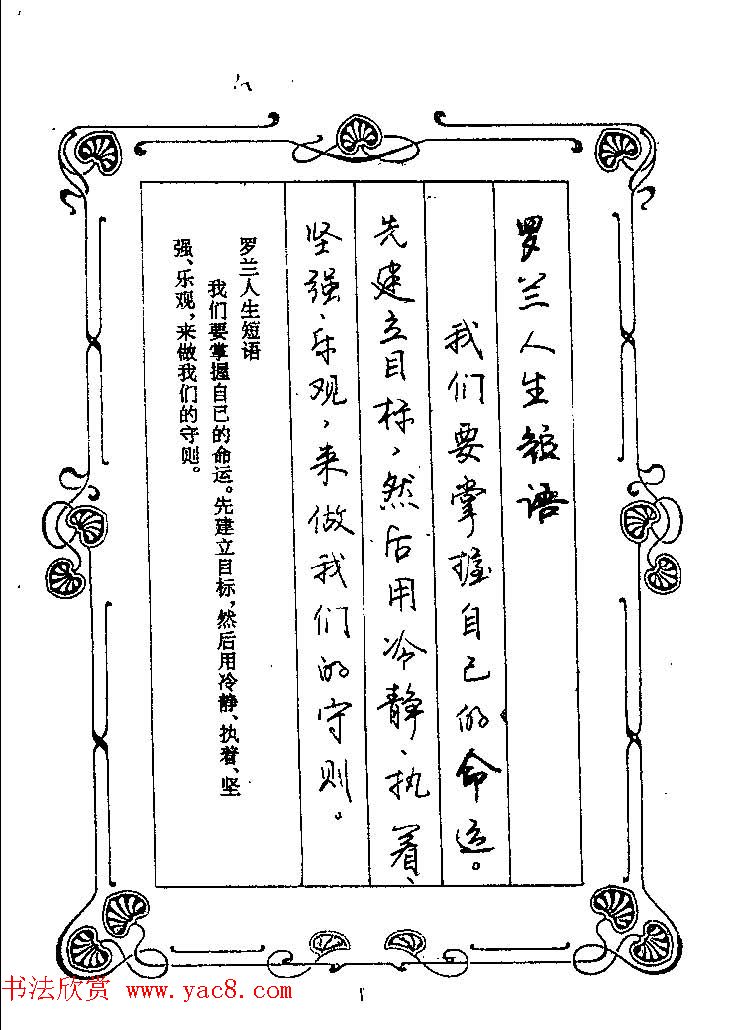 罗兰人生短语
我们要掌握自己的命运。
先建立目标，然后用冷静、执着、
坚强、乐观，来做我们的守则。
罗兰人生短语
我们要掌握自己的命运。先建立目标，然后用冷静、执着、坚
强、乐观，来做我们的守则。
书法欣赏 www.yac8.com
1